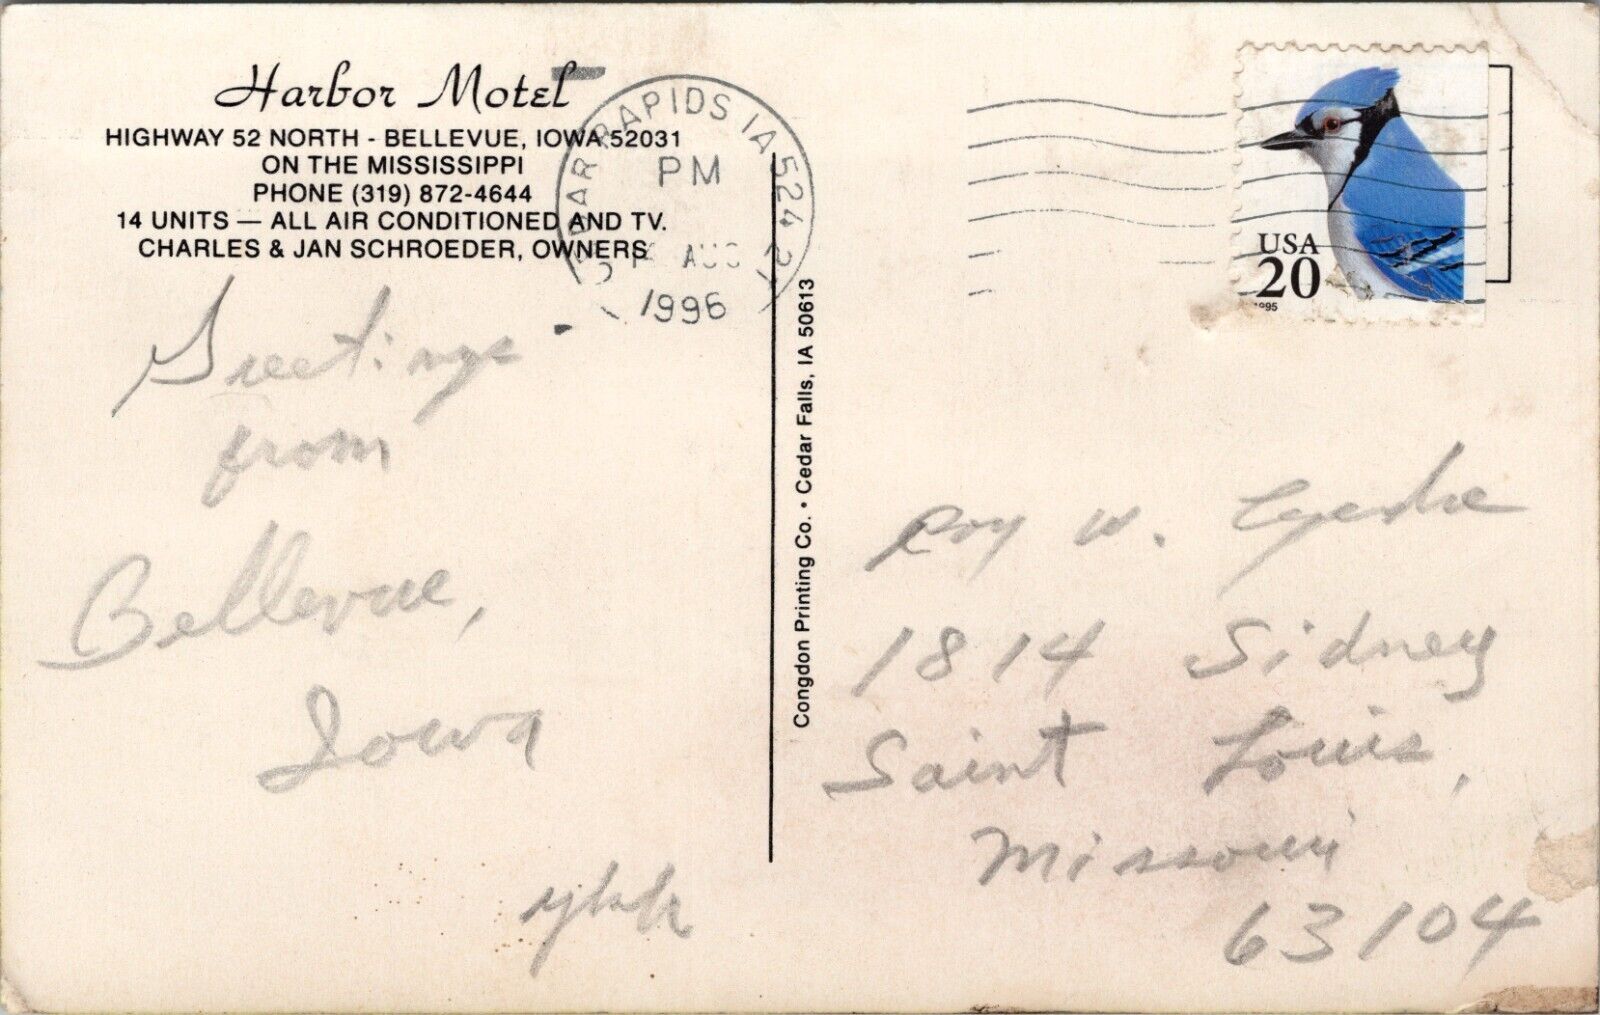 Harbor Motel
HIGHWAY 52 NORTH - BELLEVUE, IOWA 52031
ON THE MISSISSIPPI
PHONE (319) 872-4644
14 UNITS — ALL AIR CONDITIONED AND TV.
CHARLES & JAN SCHROEDER, OWNERS
RAPIDS IA 524
PM
AUG
1996
USA
20
1995
Greetings
from
Bellevue,
Iowa
Congdon Printing Co. • Cedar Falls, IA 50613
Roy W.
1814 Sidney
Saint Louis,
Missouri
63104